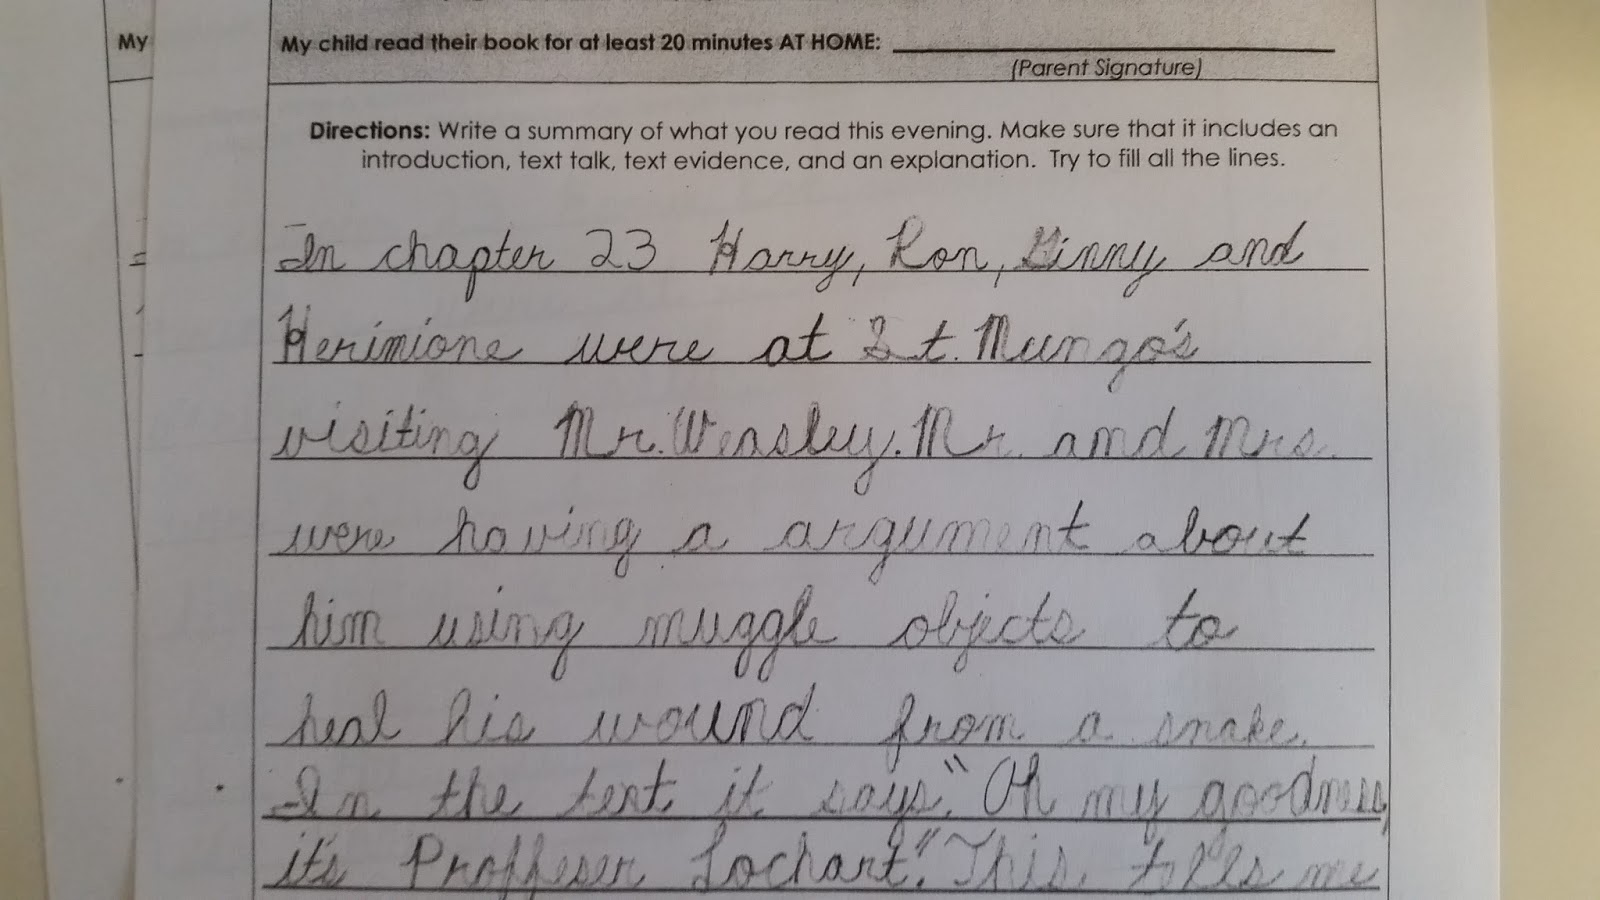 My
My child read their book for at least 20 minutes AT HOME:
(Parent Signature)
Directions: Write a summary of what you read this evening. Make sure that it includes an
introduction, text talk, text evidence, and an explanation. Try to fill all the lines.
In chapter 23 Harry, Ron, Ginny and
Herimione were at St. Mungo's
visiting Mr. Weasley. Mr. and Mrs.
were having a argument about
him using muggle objects to
heal his wound from a snake.
In the text it says," Oh my goodness,
it's Proffeser Lochart." This tells me